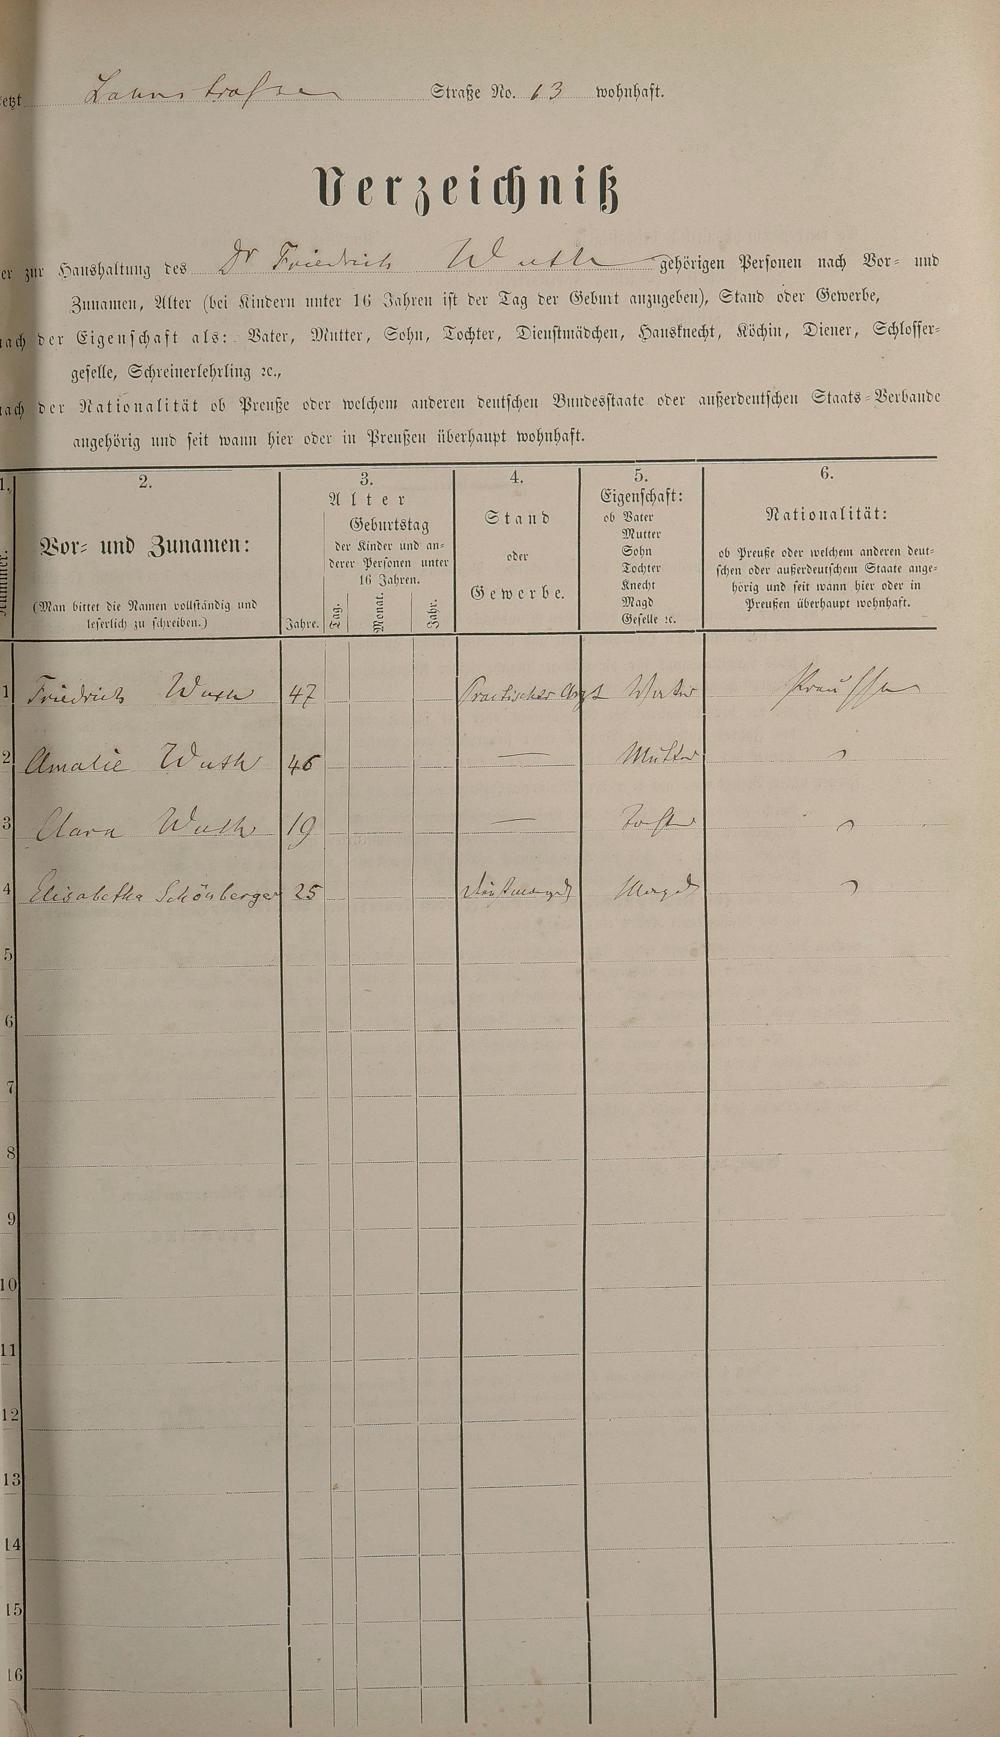 etzt Lahnstrasse Straße No. 13 wohnhaft.
Verzeichniß
er zur Haushaltung des Dr Friedrich Wuth gehörigen Personen nach Vor- und
Zunamen, Alter (bei Kindern unter 16 Jahren ist der Tag der Geburt anzugeben), Stand oder Gewerbe,
nach der Eigenschaft als: Vater, Mutter, Sohn, Tochter, Dienstmädchen, Hausknecht, Köchin, Diener, Schlosser-
geselle, Schreinerlehrling ꝛc.,
nach der Nationalität ob Preuße oder welchem anderen deutschen Bundesstaate oder außerdeutschen Staats-Verbande
angehörig und seit wann hier oder in Preußen überhaupt wohnhaft.
1. 2. 3. 4. 5. 6.
Nummer.
Vor- und Zunamen:
(Man bittet die Namen vollständig und
leserlich zu schreiben.)
Alter
Jahre.
Geburtstag
der Kinder und an-
derer Personen unter
16 Jahren.
Tag. Monat. Jahr.
Stand
oder
Gewerbe.
Eigenschaft:
ob Vater
Mutter
Sohn
Tochter
Knecht
Magd
Geselle ꝛc.
Nationalität:
ob Preuße oder welchem anderen deut-
schen oder außerdeutschem Staate ange-
hörig und seit wann hier oder in
Preußen überhaupt wohnhaft.
1 Friedrich Wuth 47 Practischer Arzt Vater Preusse
2 Amalie Wuth 46 — Mutter "
3 Clara Wuth 19 — Tochter "
4 Elisabetha Schönberger 25 Dienstmagd Magd "
5
6
7
8
9
10
11
12
13
14
15
16